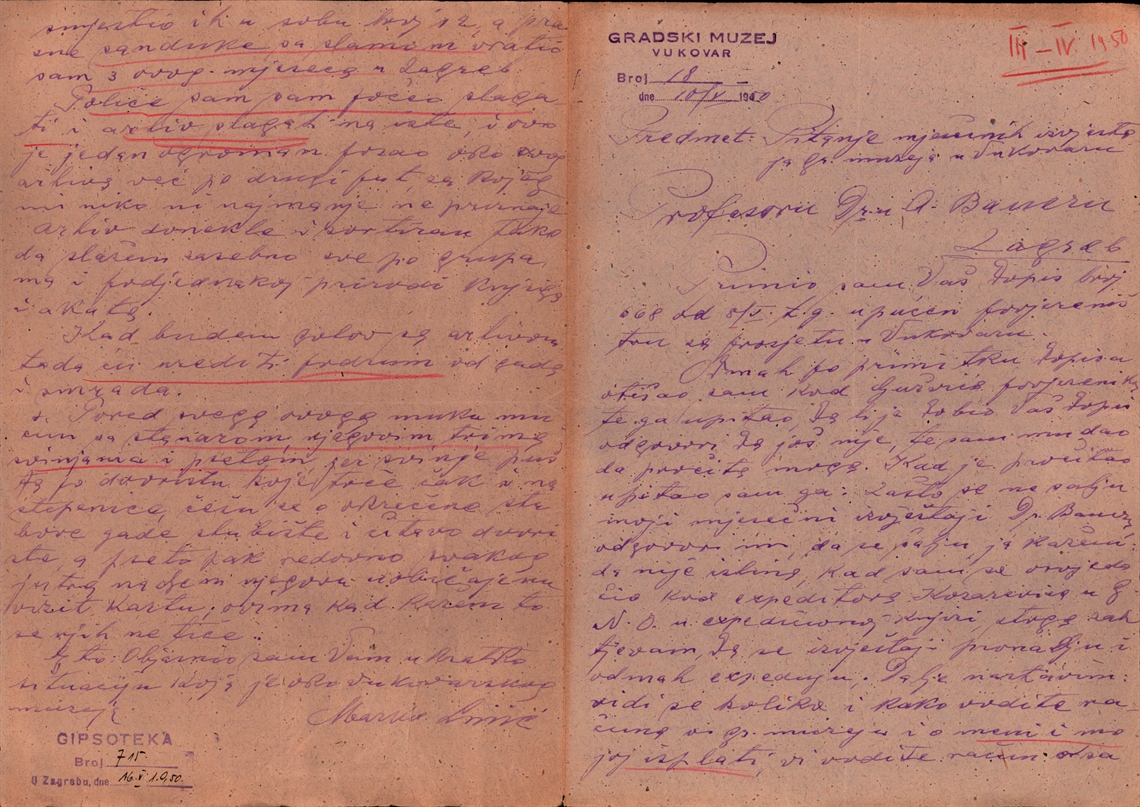 smjestio ih u sobu broj 12, a pra
zne sanduke sa slamom vratio
sam 3 ovog mjeseca u Zagreb.
Police sam sam počeo slaga
ti i arhiv slagah na iste, i ovo
je jedan ogroman posao oko ovog
arhiva već po drugi put, za kojeg
mi niko ni najmanje ne priznaje
arhiv donekle i sortiran tako
da slažem zasebno sve po grupa,
ma i podjednakoj prirodi knjiga
i akata.
Kad budem gotov sa arhivom
tada ću urediti podrum od gada
i smrada.
Pored svega ovoga muku mu
čim sa stanarom njegovim trima
svinjama i psetom jer svinje puš
ta po dvorištu koje toče čak i na
stepenice, češu se o okrečene stu
bove gade stubište i čitavo dvori
šte, a pseto pak redovno svakog
jutra nađem njegovu uobičajenu
vizit kartu, ovima kad kažem to
se njih ne tiče.
Eto: Objasnio sam Vam u kratko
situaciju koja je oko vukovarskog
muzeja.
Marko
GIPSOTEKA
Broj 715
U Zagrebu, dne 16.V 1950.
GRADSKI MUZEJ
VUKOVAR
III - IV 1950
Broj 18
dne 10/V 1950
Predmet: Pitanje mjesečnih izvješta
ja gr. muzeja u Vukovaru
Profesoru Dr-u A. Baueru
Zagreb
Primio sam Vaš dopis broj
668 od 8/V. t.g. upućen povjereniš
tvu za prosvjetu u Vukovaru.
Odmah po primitku dopisa
otišao sam kod povjerenika
te ga upitao da li je dobio Vaš dopis
odgovori da još nije, te sam mu dao
da pročita moga. Kad je pročitao
upitao sam ga: Zašto se ne šalju
moji mjesečni izvještaji Dr Baueru
odgovori mi, da se šalju, ja kažem:
da nije istina, kad sam se osvjedo
čio kod expeditora u G.
N. O. u expedicionoj knjizi stoga zah
tjevam da se izvještaji pronađu i
odmah expeduju. Dalje nastavim:
vidi se koliko i kako vodite ra-
čuna o gr. muzeju i o meni i mo
joj isplati, vi vodite račun